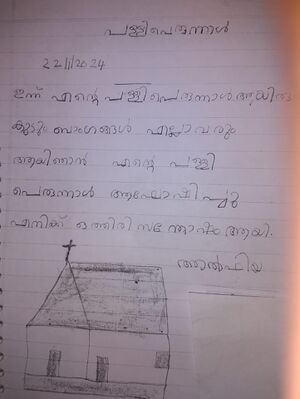 പള്ളിപെരുന്നാൾ
22/1/2024
ഇന്ന് എന്റെ പള്ളിപെരുന്നാൾ ആയിരു
കുടുംബാംഗങ്ങൾ എല്ലാവരും
ആയിഞാൻ എന്റെ പള്ളി
പെരുന്നാൾ ആഘോഷിച്ചു
എനിക്ക് ഒത്തിരി സന്തോഷം ആയി.
ആൽഫിയ